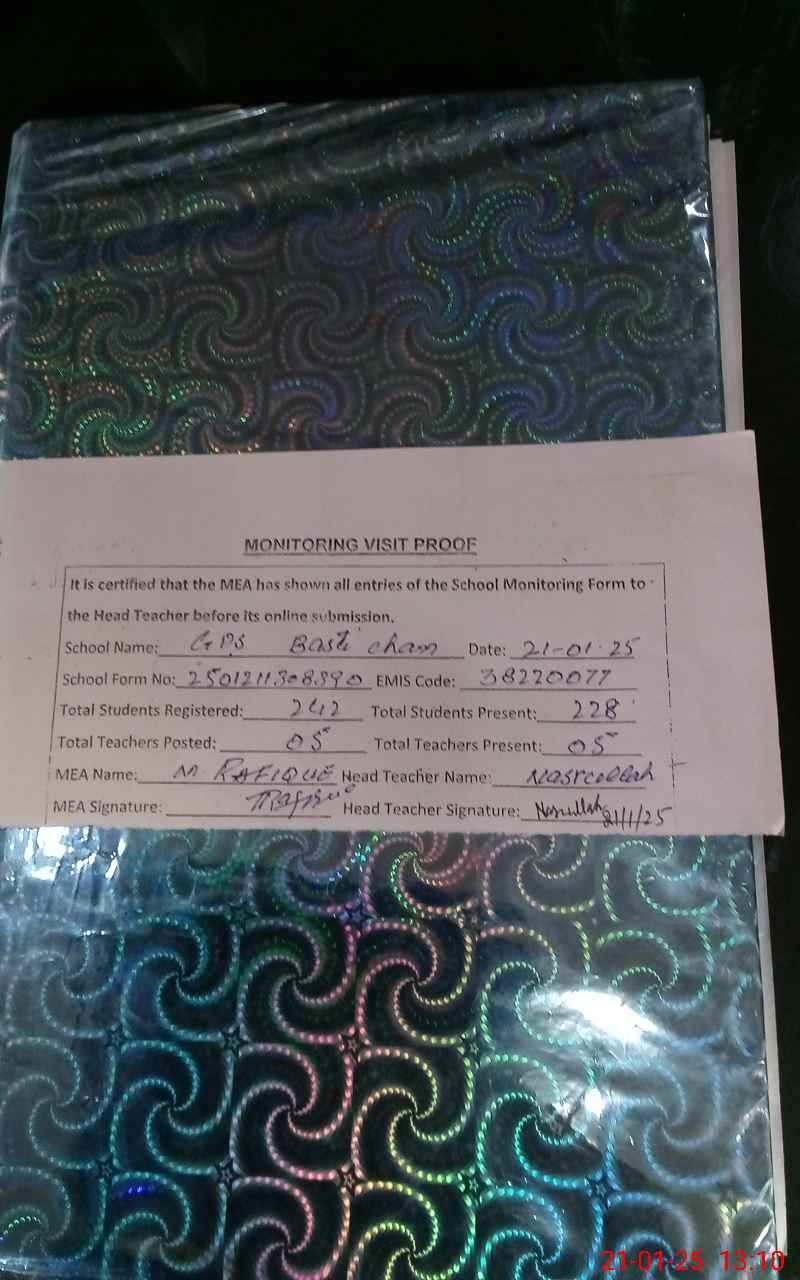 MONITORING VISIT PROOF
It is certified that the MEA has shown all entries of the School Monitoring Form to
the Head Teacher before its online submission.
School Name: GPS Basti chan Date: 21-01-25
School Form No: 2501211308890 EMIS Code: 38220077
Total Students Registered: 242 Total Students Present: 228
Total Teachers Posted: 05 Total Teachers Present: 05
MEA Name: M. RAFIQUE Head Teacher Name: Nasrullah
MEA Signature: Rafique Head Teacher Signature: Nasrullah 21/1/25
21-01-25 13:10